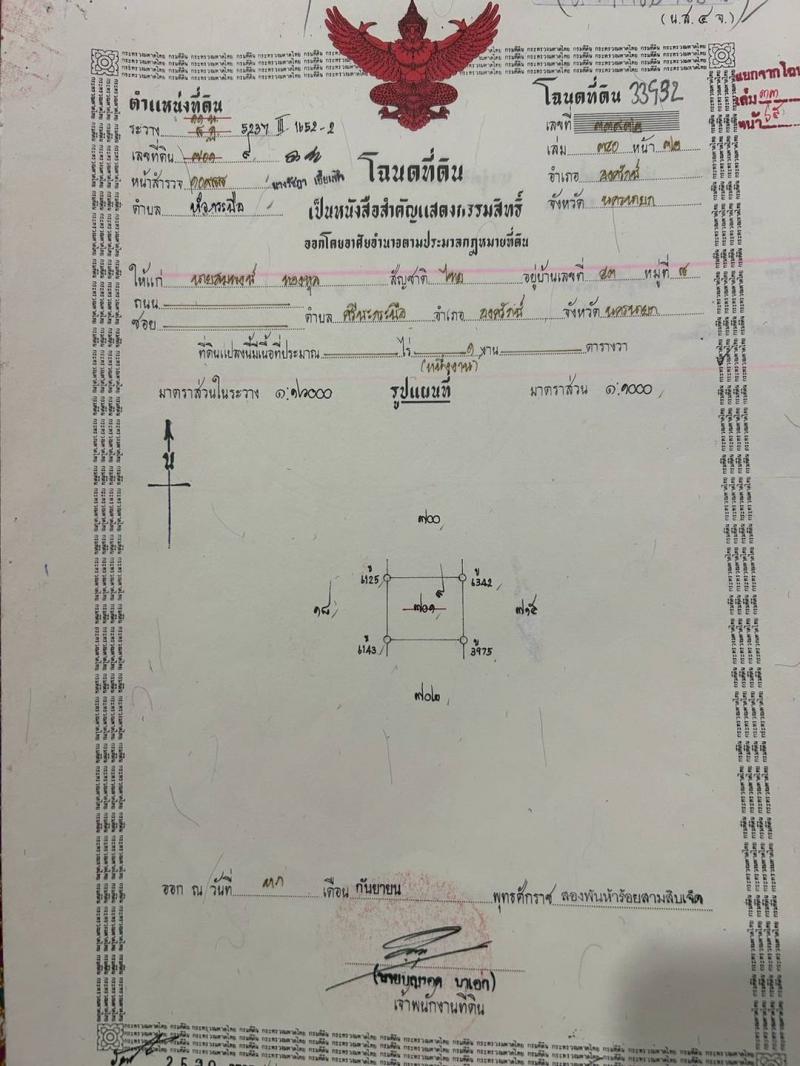 (น.ส.๔ จ.)
แยกจากโฉน
เล่ม ๓๓
หน้า ๖๕
ตำแหน่งที่ดิน
ระวาง 5237 III 1652-2
เลขที่ดิน ๗๐๑ ๙
หน้าสำรวจ
ตำบล
โฉนดที่ดิน 33932
เลขที่ ๓๓๙๓๒
เล่ม ๓๔๐ หน้า ๓๒
อำเภอ องครักษ์
จังหวัด นครนายก
โฉนดที่ดิน
เป็นหนังสือสำคัญแสดงกรรมสิทธิ์
ออกโดยอาศัยอำนาจตามประมวลกฎหมายที่ดิน
ให้แก่ สัญชาติ ไทย อยู่บ้านเลขที่ ๕๓ หมู่ที่ ๘
ถนน
ซอย ตำบล ศรีษะกระบือ อำเภอ องครักษ์ จังหวัด นครนายก
ที่ดินแปลงนี้มีเนื้อที่ประมาณ ไร่ ๑ งาน ตารางวา
(หนึ่งงาน)
มาตราส่วนในระวาง รูปแผนที่ มาตราส่วน ๑:๑๐๐๐
น
๗๐๐
ข 6125
ข 6342
๑๘
๗๐๑ ๙
๗๑๕
ข 6143
ข 3975
๗๐๒
ออก ณ วันที่ เดือน กันยายน พุทธศักราช สองพันห้าร้อยสามสิบเจ็ด
เจ้าพนักงานที่ดิน